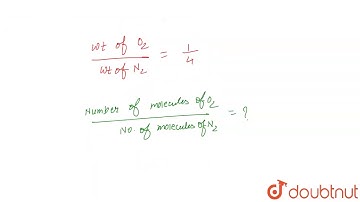 wt of O2 / wt of N2 = 1/4
Number of molecules of O2 / No. of molecules of N2 = ?
doubtnut